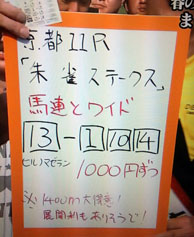 春の
京都11R
「朱雀ステークス」
馬連とワイド
13-1 10 14
ヒルノマゼラン
1000円ずつ
※1400m大得意!
展開利もありそうで!